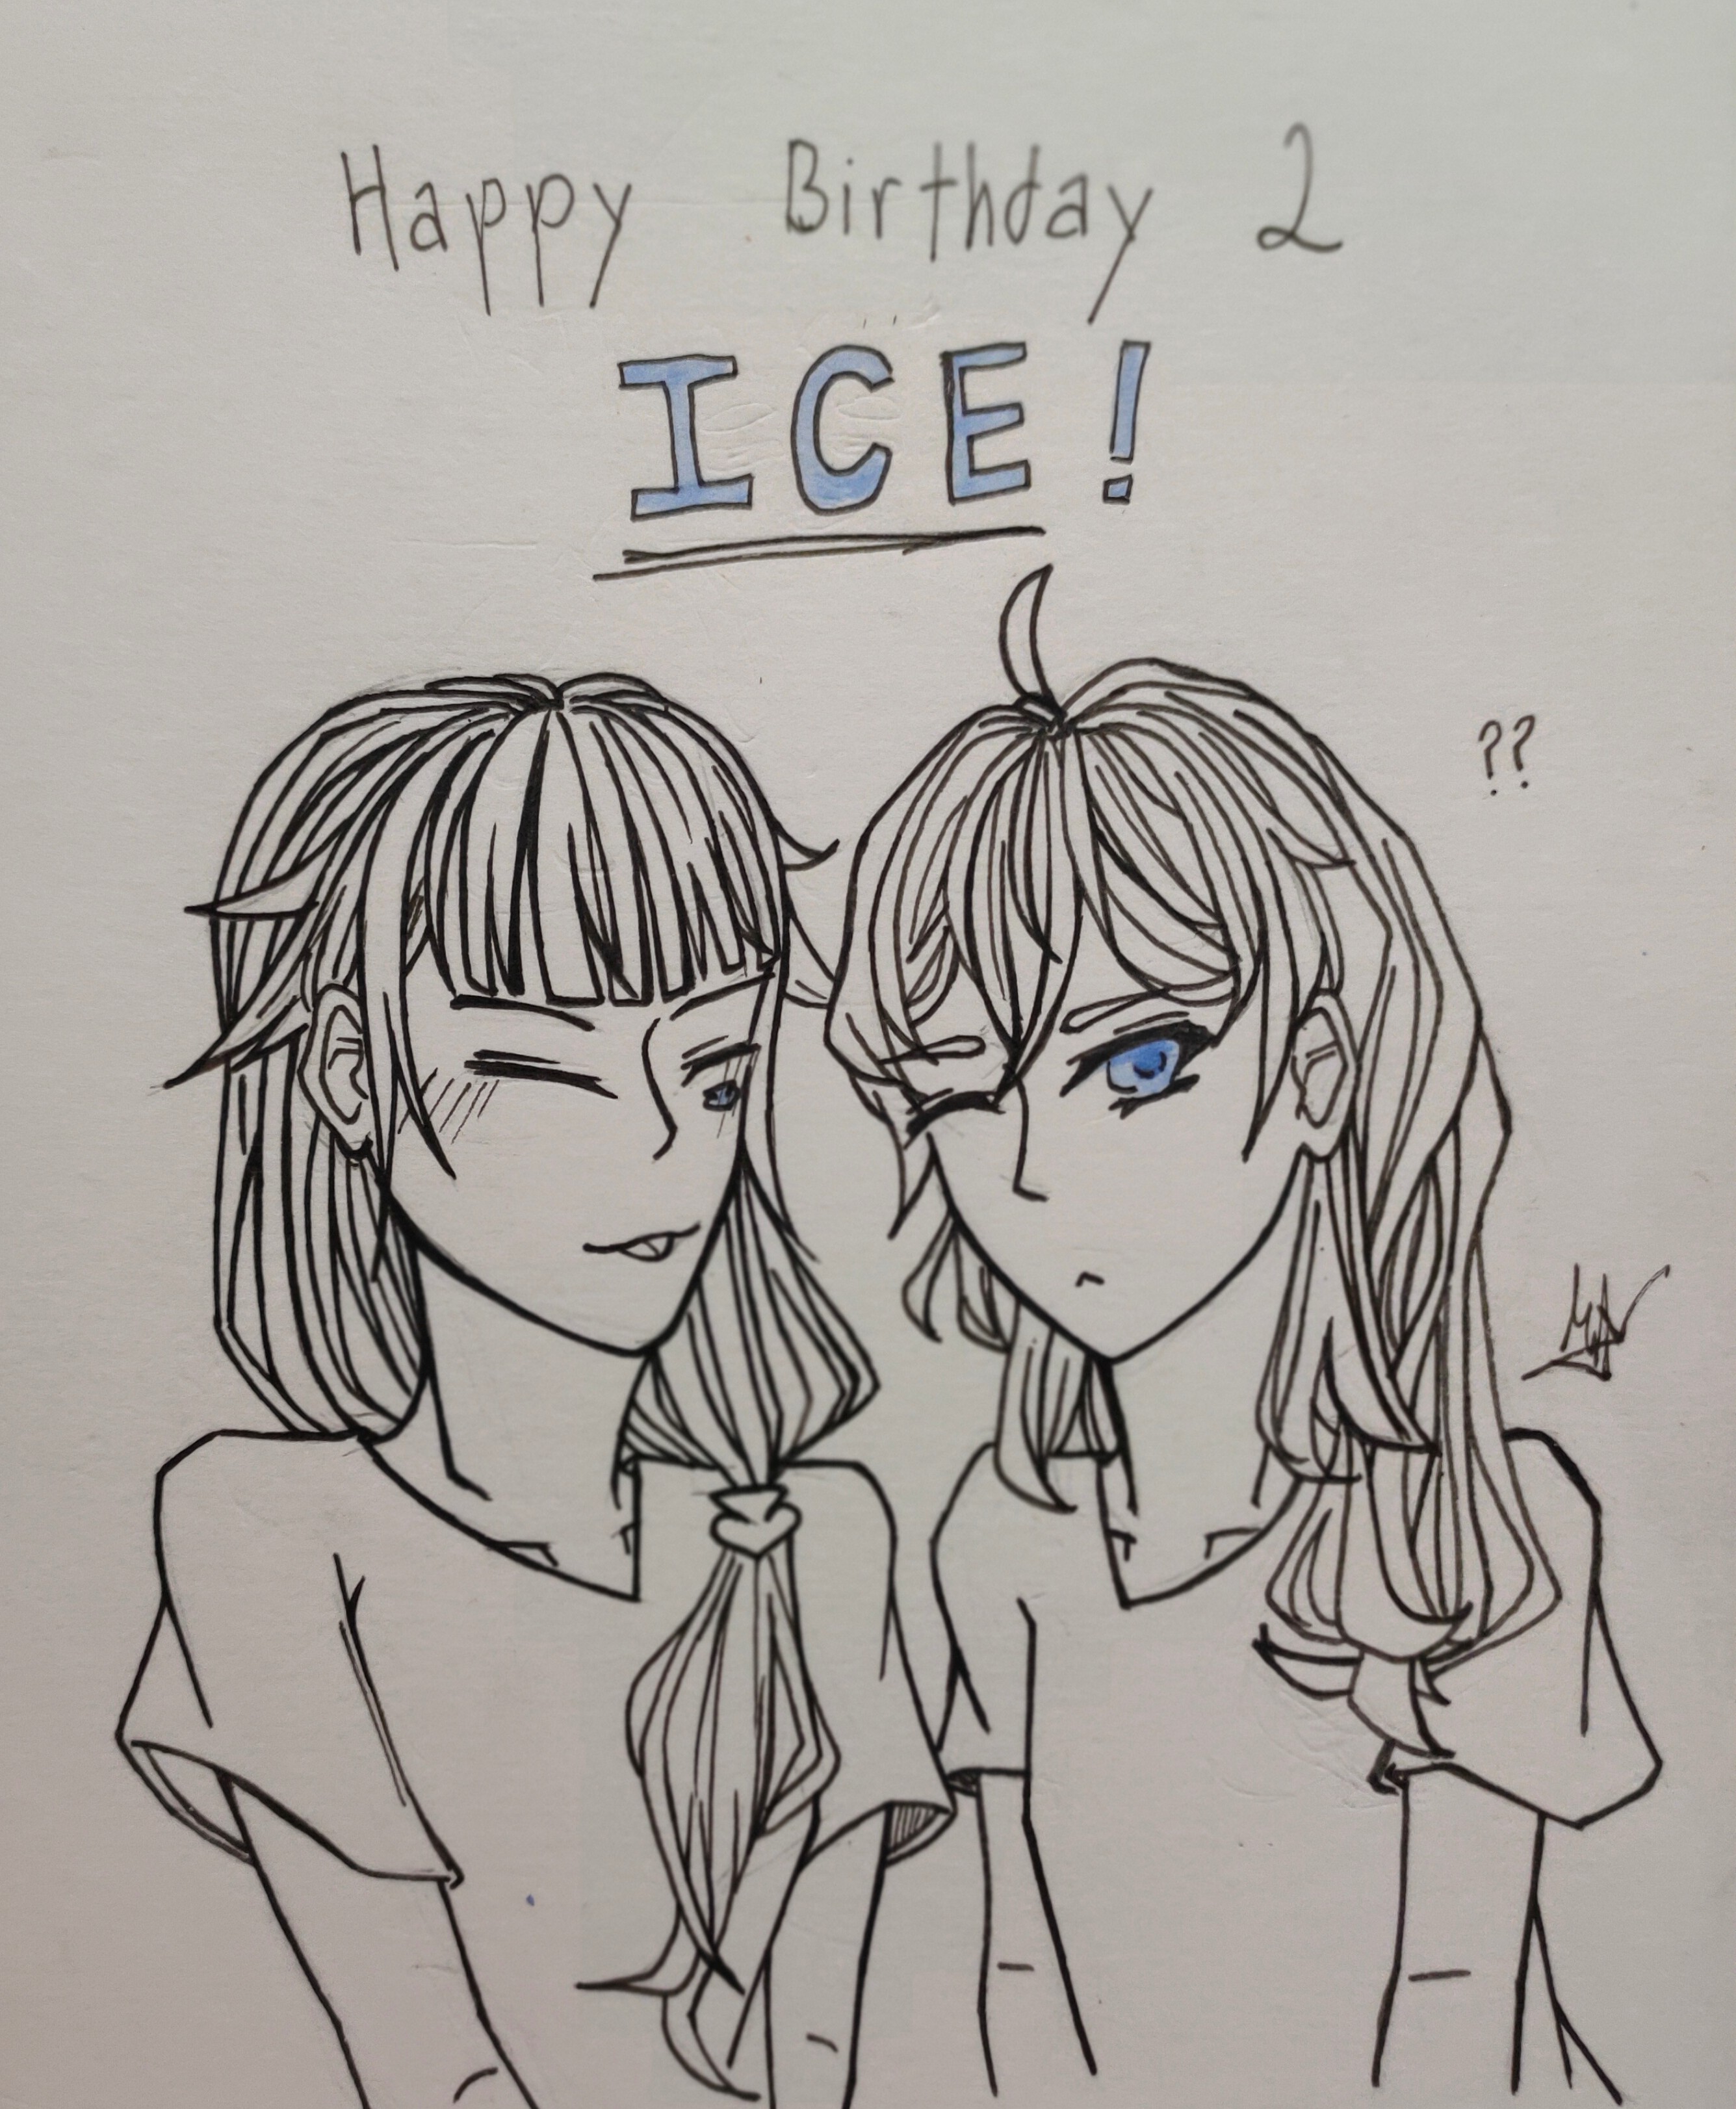 Happy Birthday 2
ICE!
??